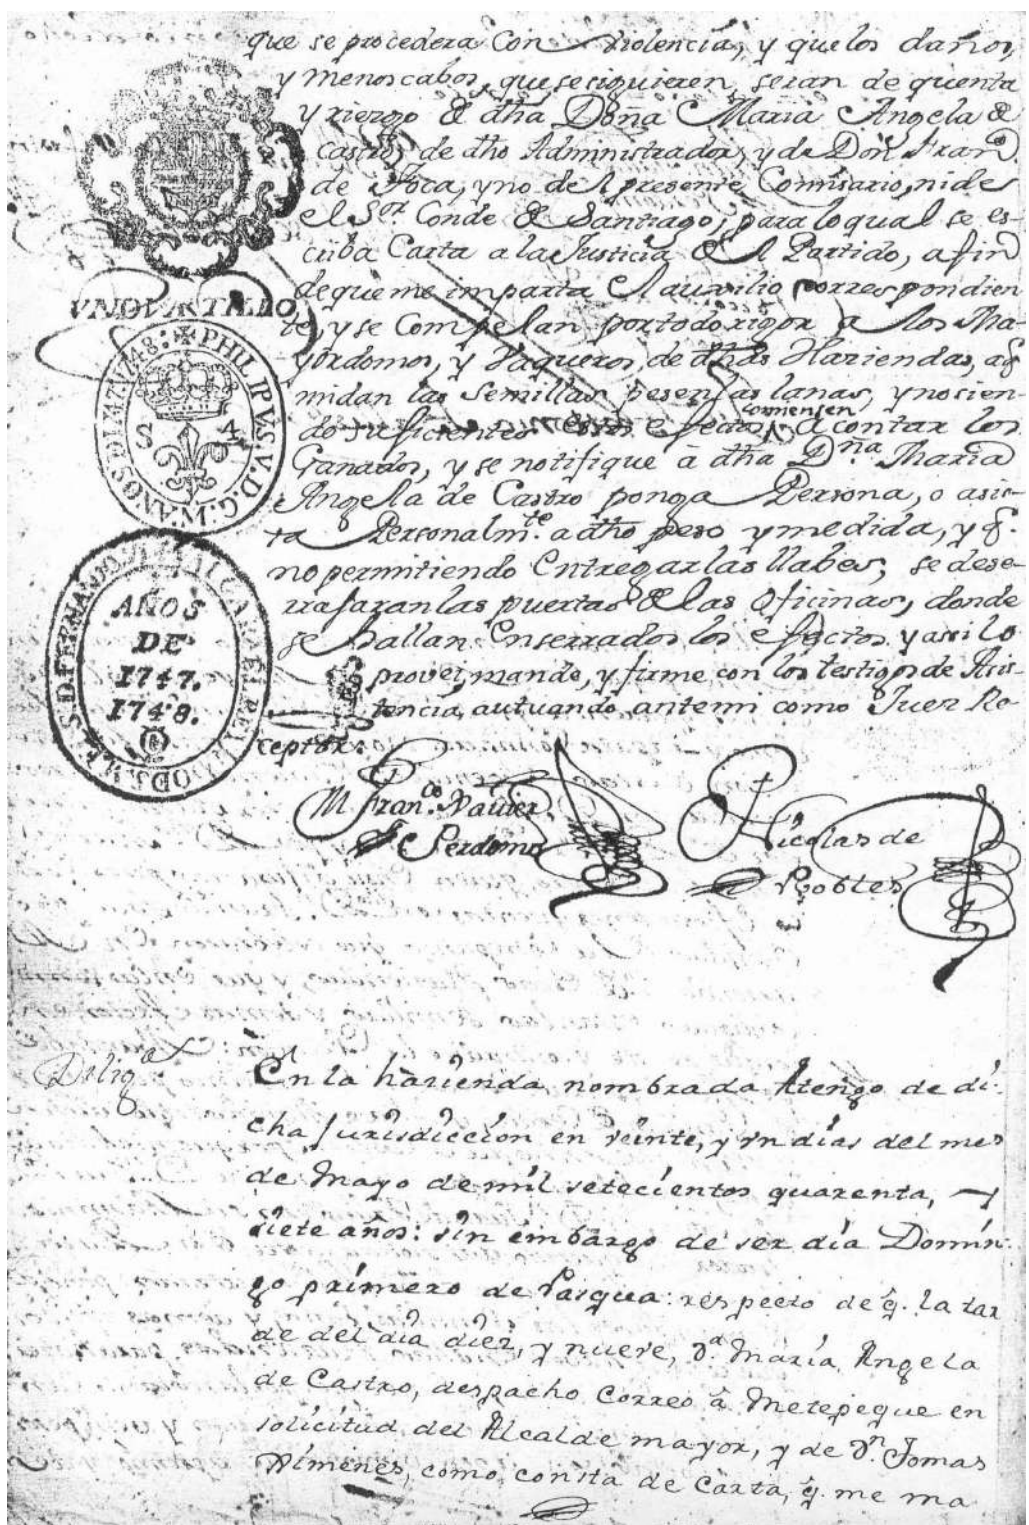 que se procedera Con violencia, y quelos daños,
y menoscabos, que sesiguieren, seran de quenta
y riezgo de dha Doña Maria Angela de
Castro, de dho Administrador, y de Don Fran.co
de Roca, yno del presente Comisario, nide
el S.or Conde de Santiago, para loqual se es-
criba Carta ala Justicia del Partido, afin
dequeme imparta el auxilio correspondien
te, y se Compelan portodo rigor a los Ma
yordomos, y Vaqueros, de dhas Haziendas, aq̃
midan las Semillas, pesen las lanas, ynosien-
do suficientes estos efectos, comiensen a contar los
Ganados, y se notifique à dha D.ña Maria
Angela de Castro ponga Persona, o asis-
ta Personalm.te a dho peso ymedida, y q̃.
nopermitiendo Entregarlas llabes, se dese-
rrajaran las puertas de las Oficinas, donde
se hallan Enserrados los efectos, yassi lo
provei, mande, y firme con los testigos de Asis-
tencia, autuando antemi como Juez Re-
ceptor.
VN QVARTILLO
PHILIPVS. V. D. G.
S 4
AÑOS
DE
1747.
1748.
M Fran.co Xavier
de Perdomo
Nicolas de
Robles
Dilig.a
En la hazienda nombrada Atengo de di-
cha Jurisdiccion en veinte, y vn dias del mes
de Mayo de mil setecientos quarenta, y
siete años: sin embargo de ser dia Domin-
go primero de Pasqua: respecto de q̃. la tar
de del dia diez, y nueve, D.a Maria Angela
de Castro, despacho Correo â Metepeque en
solicitud del Alcalde mayor, y de D.n Tomas
Ximenes, como consta de Carta, q̃. me ma